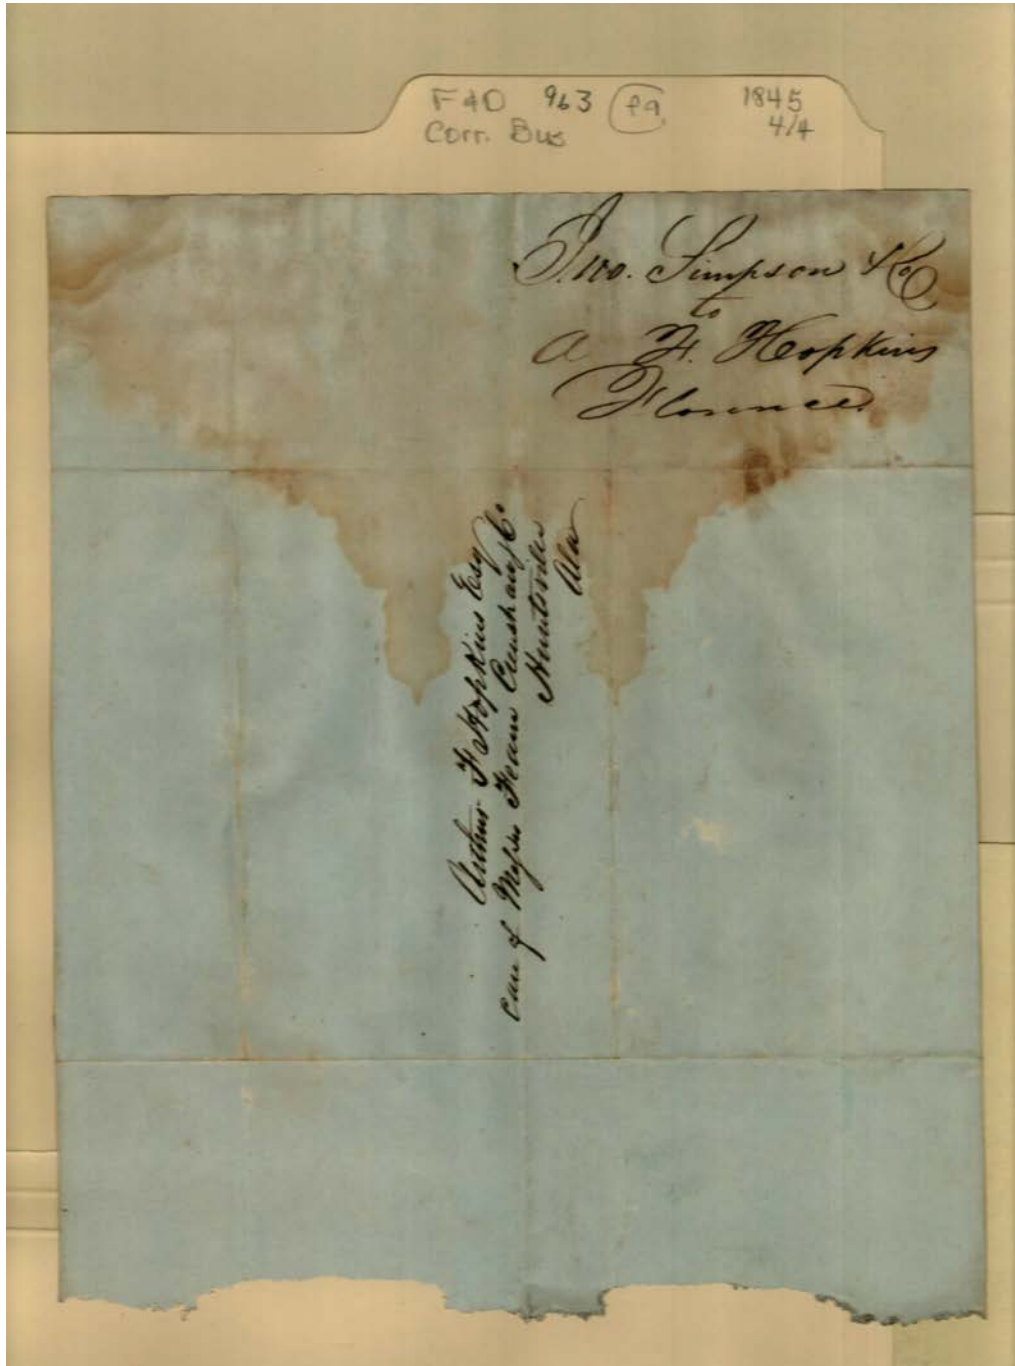 F & D 963 1845
Corr. Bus 4/4
Jno. Simpson & Co
to
A F. Hopkins
Florence
Arthur F Hopkins Esq
Care of Messrs Fearn Crenshaw & Co
Huntsville
Ala